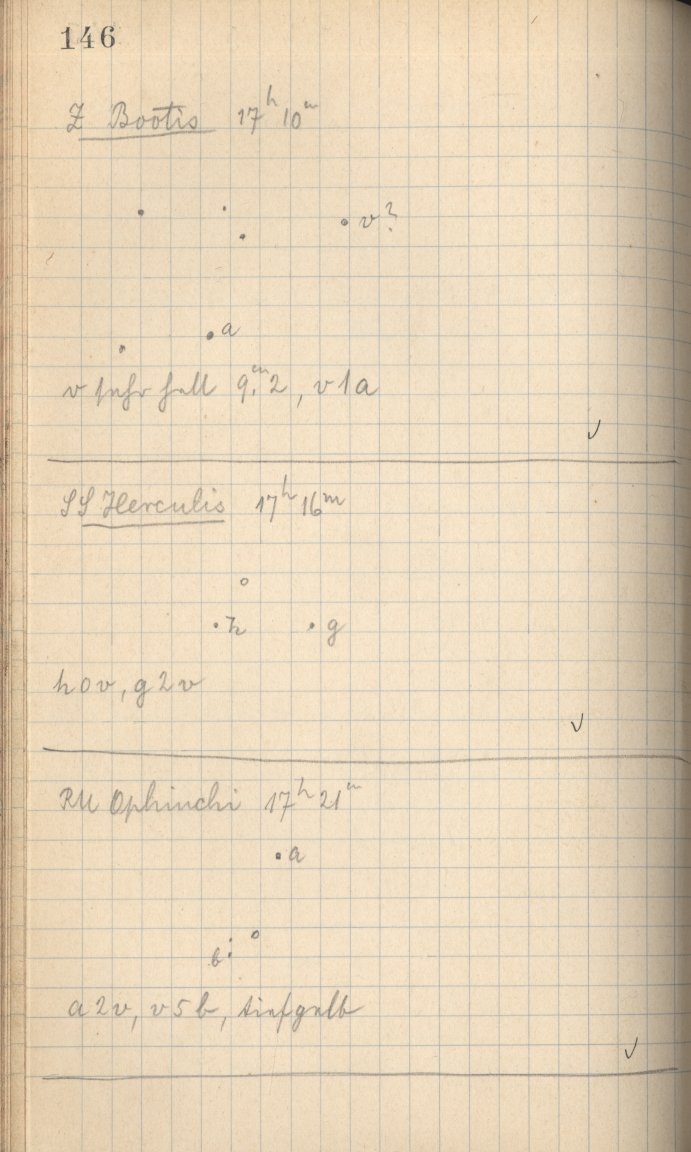 146
Z Bootis 17h 10m
v?
a
v sehr hell 9.m2, v1a
SS Herculis 17h 16m
h g
h0v, g2v
RU Ophiuchi 17h 21m
a
b
a2v, v5b, tiefgelb